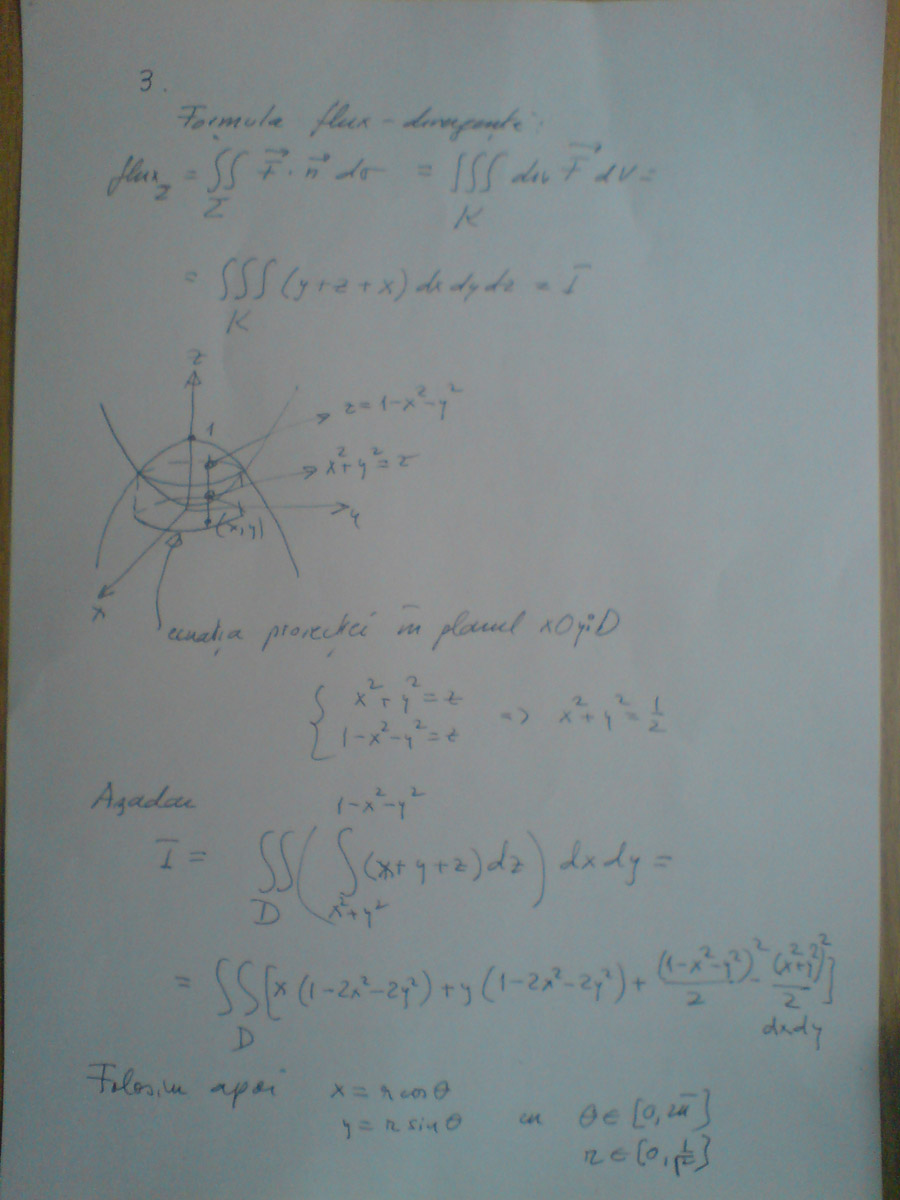 3.
Formula flux-divergență:
flux_Σ = ∬_Σ F⃗ · n⃗ dσ = ∭_K div F⃗ dV =
= ∭_K (y+z+x) dx dy dz = I
z
z = 1-x²-y²
1
x²+y² = z
y
(x,y)
x
ecuația proiecției în planul xOy: D
{ x²+y² = z
1-x²-y² = z => x²+y² = 1/2
Așadar
I = ∬_D ( ∫_{x²+y²}^{1-x²-y²} (x+y+z) dz ) dx dy =
= ∬_D [x (1-2x²-2y²) + y (1-2x²-2y²) + (1-x²-y²)²/2 - (x²+y²)²/2]
dxdy
Folosim apoi x = r cos θ
y = r sin θ cu θ ∈ [0, 2π]
r ∈ [0, 1/√2]